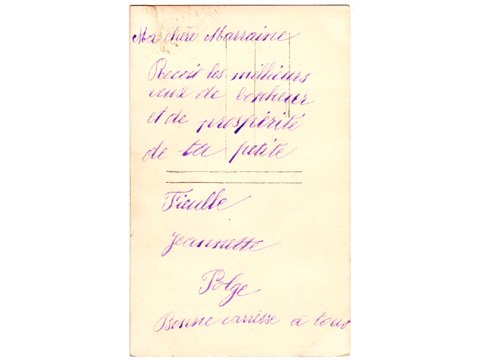 Ma chère Marraine
Recoit les meilleurs
veux de bonheur
et de prospérité
de ta petite
Fieulle
Jeannette
Polge
Bonne carresse a tous